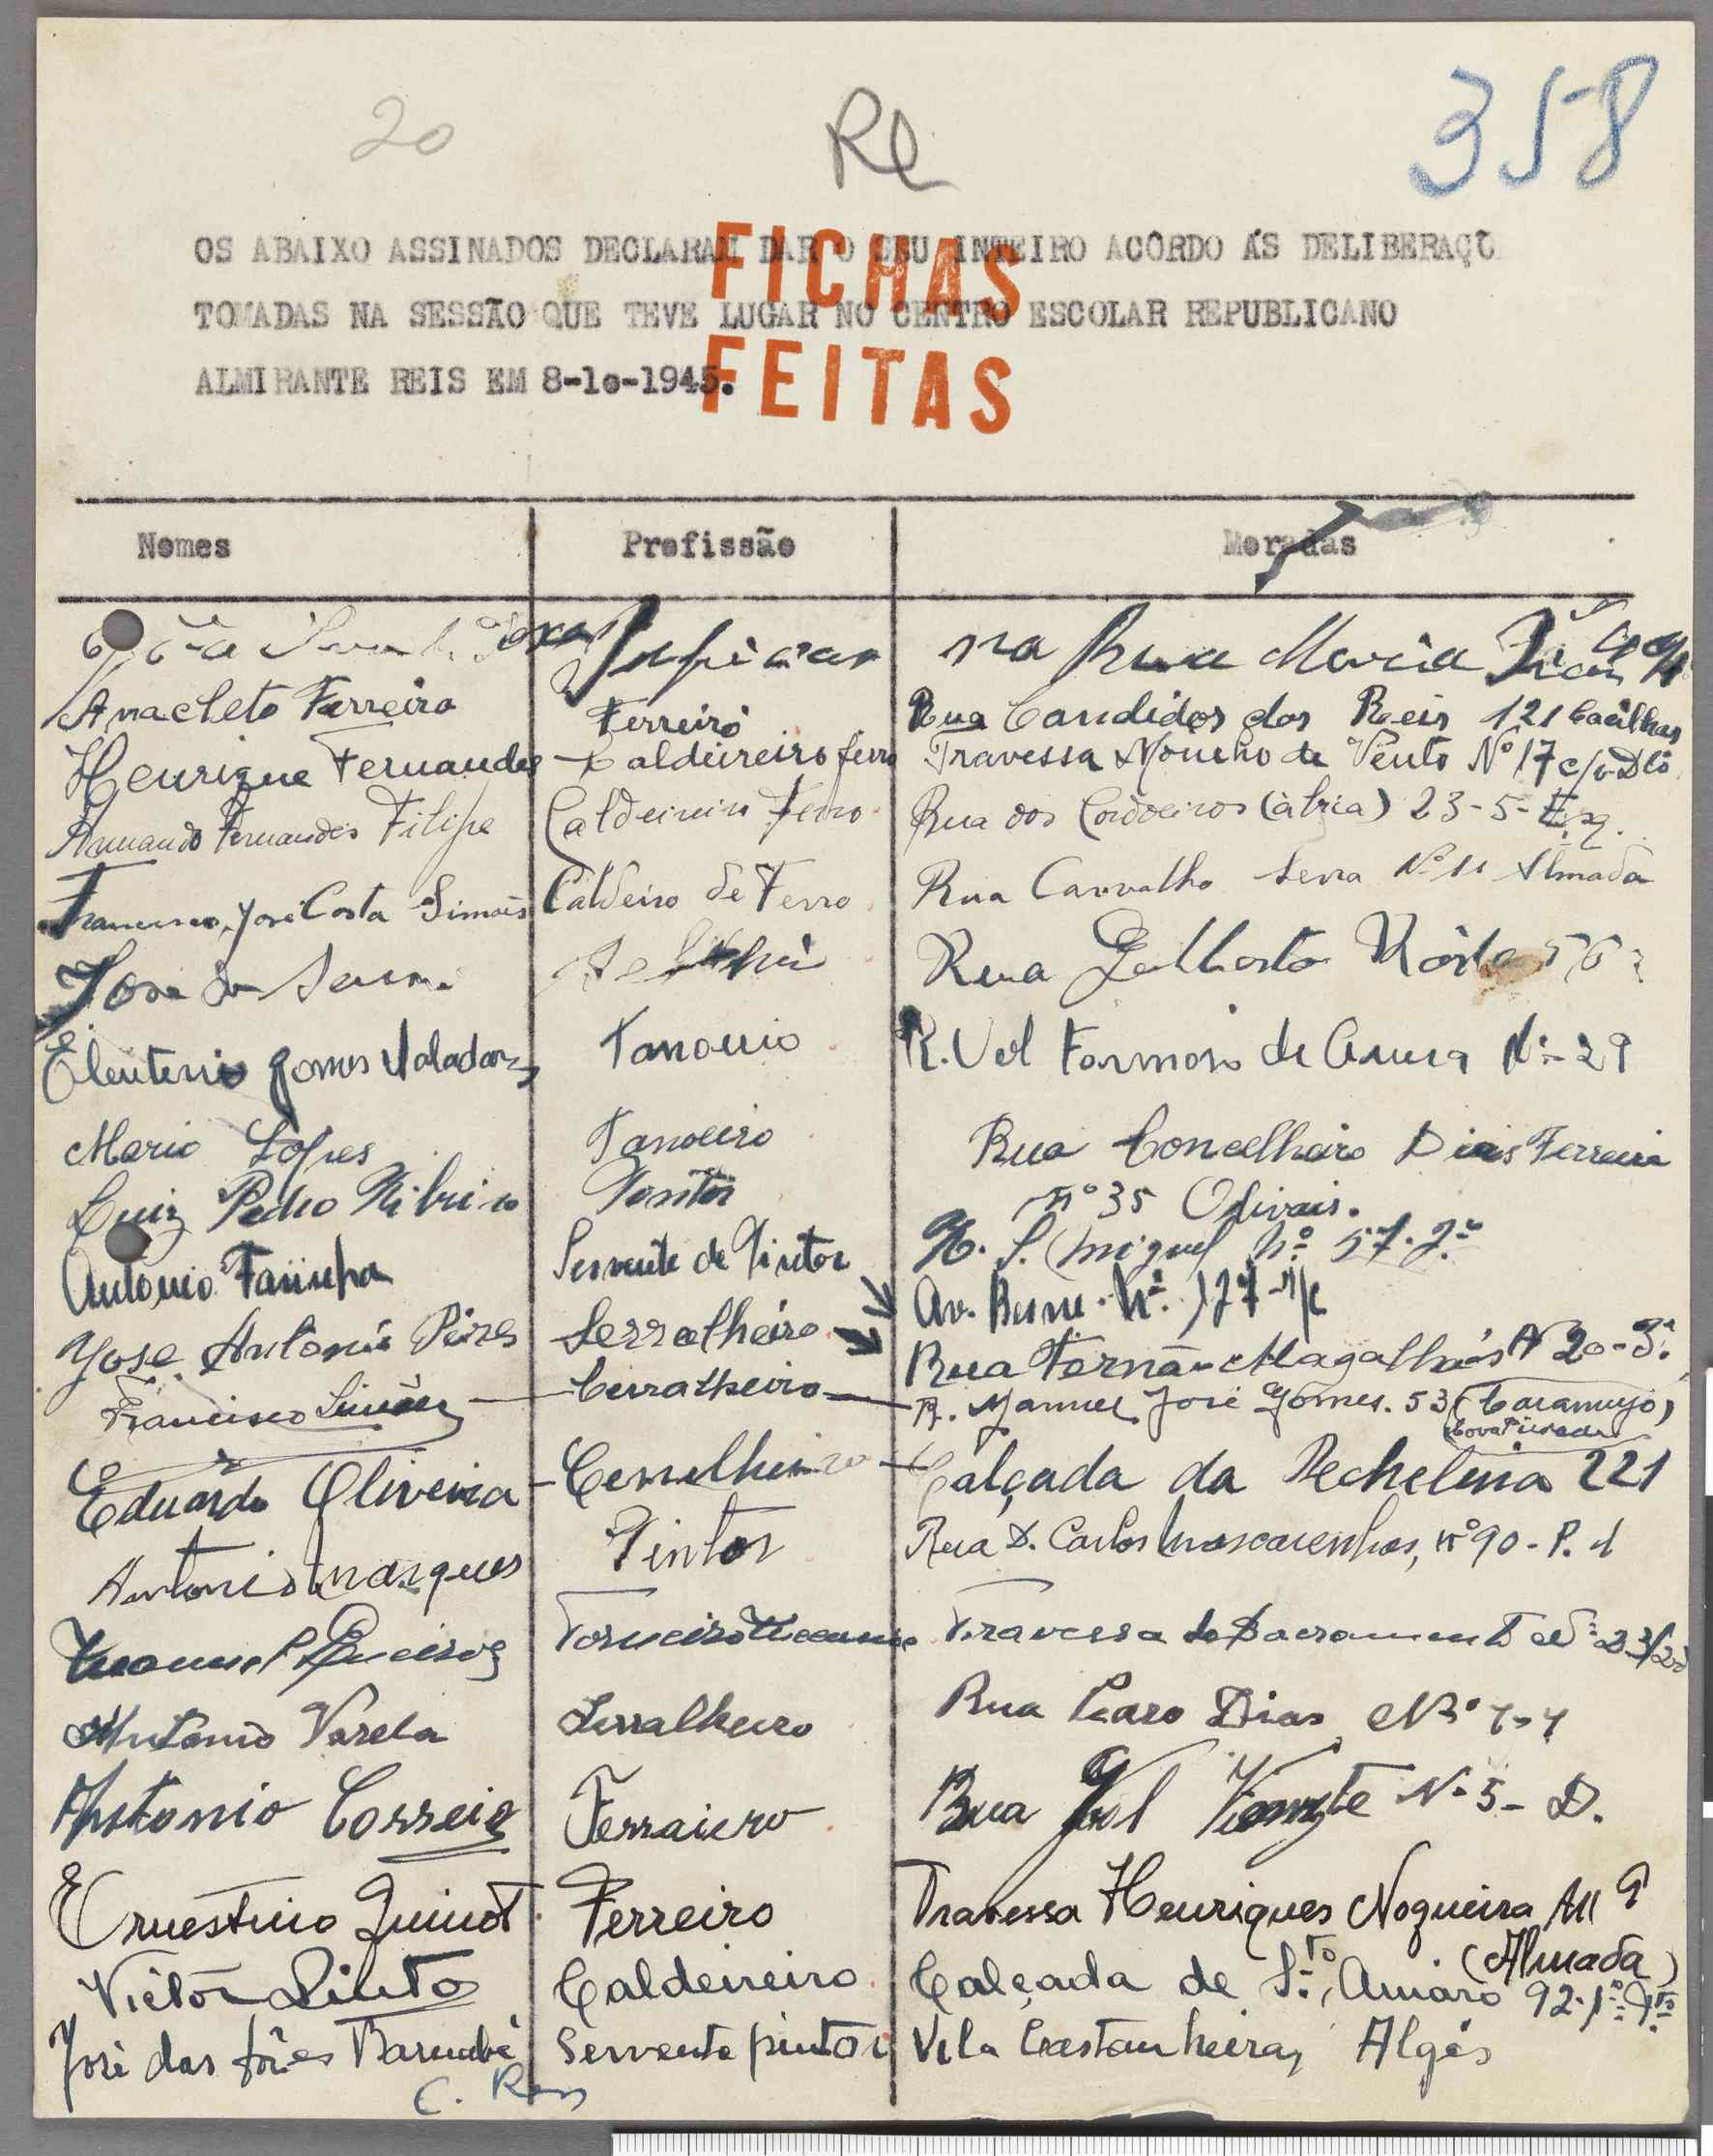 20
358
OS ABAIXO ASSINADOS DECLARAM DAR O SEU INTEIRO ACÔRDO ÁS DELIBERAÇÕ
TOMADAS NA SESSÃO QUE TEVE LUGAR NO CENTRO ESCOLAR REPUBLICANO
ALMIRANTE REIS EM 8-1o-1945.
FICHAS
FEITAS
Nomes Profissão Moradas
na Rua Maria
Anacleto Ferreira Ferreiro Rua Candidos dos Reis 121 Cacilhas
Henrique Fernandes Caldeireiro ferro Travessa Moinho de Vento Nº 17
Armando Fernandes Filipe Caldeireiro ferro Rua dos Cordoeiros 23-5- Esq.
Francisco José Costa Simões Caldeiro de Ferro Rua Carvalho Serra Nº 11 Almada
José da Rua
Eleuterio Gomes Valadares Tanoeiro R. Vol Formoso de Nº 29
Mario Lopes Tanoeiro Rua Concelheiro Dias Ferreira
nº 35 Olivais.
Luiz Pedro Ribeiro Pintor R. S. Miguel nº 57-2º
Antonio Farinha Servente de Pintor Av. Berne. Nº. 127-r/c
Jose Antonio Pires Serralheiro Rua Fernão Magalhães Nº 20-3º
Francisco Simões Cerralheiro R. Manuel José Gomes. 53 (Caramujo)
Cova Piedade
Eduardo Oliveira Cerralheiro Calçada da Pechelina 221
Antonio Marques Pintor Rua D. Carlos Mascarenhas, nº 90 - P. 1
Manuel Queiroz Torneiro Mecanico Travessa do Sacramento
Antonio Varela Serralheiro Rua Dias Nº
Antonio Correia Ferraiero Rua Gil Vicente Nº 5- D.
Ernestino Ferreiro Travessa Henriques Nogueira 9
(Almada)
Victor Pinto Caldeireiro Calçada de Stº. Amaro 92-1º-
José das Barnabé Servente pintor Vila Castanheira, Algés